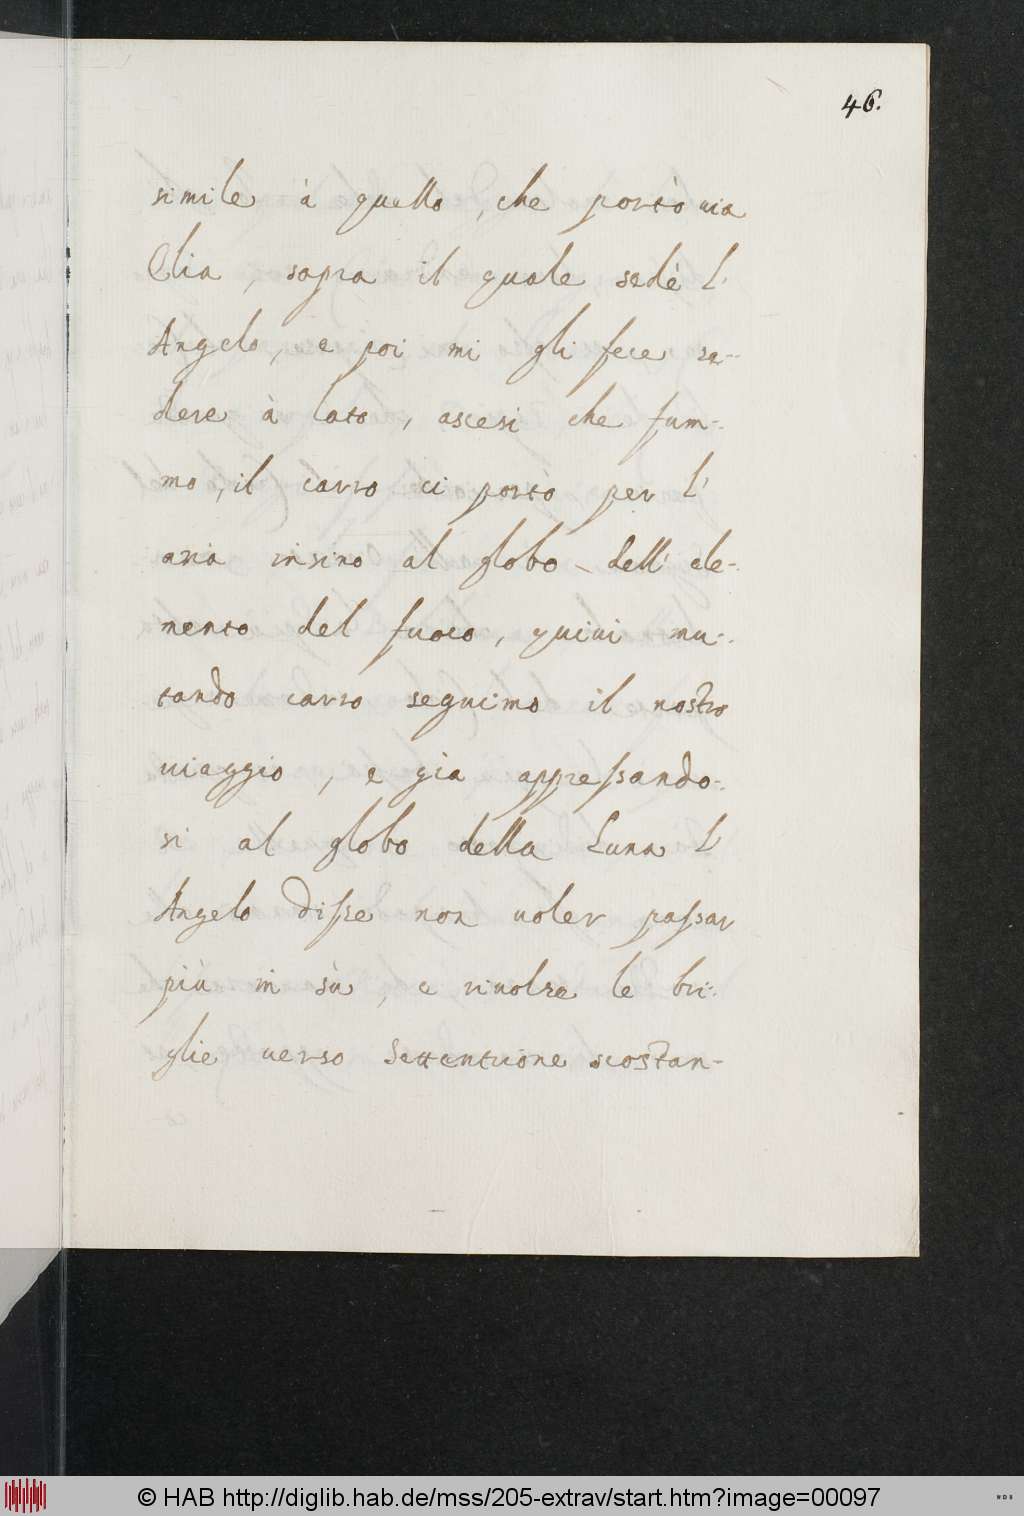 46.
simile à quello, che portò uia
Elia, sopra il quale sedè l'
Angelo, e poi mi gli fece se-
dere à lato, ascesi che fum-
mo, il carro ci portò per l'
aria insino al globo dell' ele-
mento del fuoco, quiui mu-
tando carro seguimo il nostro
uiaggio, e già appressando-
si al globo della Luna l'
Angelo disse non uoler passar
più in sù, e riuolse le bri-
glie uerso Settentrione scostan-
© HAB http://diglib.hab.de/mss/205-extrav/start.htm?image=00097